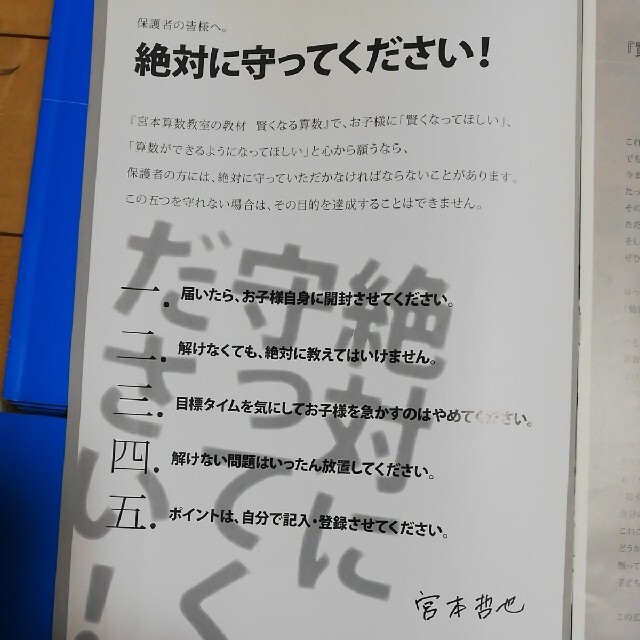 保護者の皆様へ。
絶対に守ってください！
『宮本算数教室の教材　賢くなる算数』で、お子様に「賢くなってほしい」、
「算数ができるようになってほしい」と心から願うなら、
保護者の方には、絶対に守っていただかなければならないことがあります。
この五つを守れない場合は、その目的を達成することはできません。
一. 届いたら、お子様自身に開封させてください。
二. 解けなくても、絶対に教えてはいけません。
三. 目標タイムを気にしてお子様を急かすのはやめてください。
四. 解けない問題はいったん放置してください。
五. ポイントは、自分で記入・登録させてください。
絶対に
守ってく
ださい！
宮本哲也